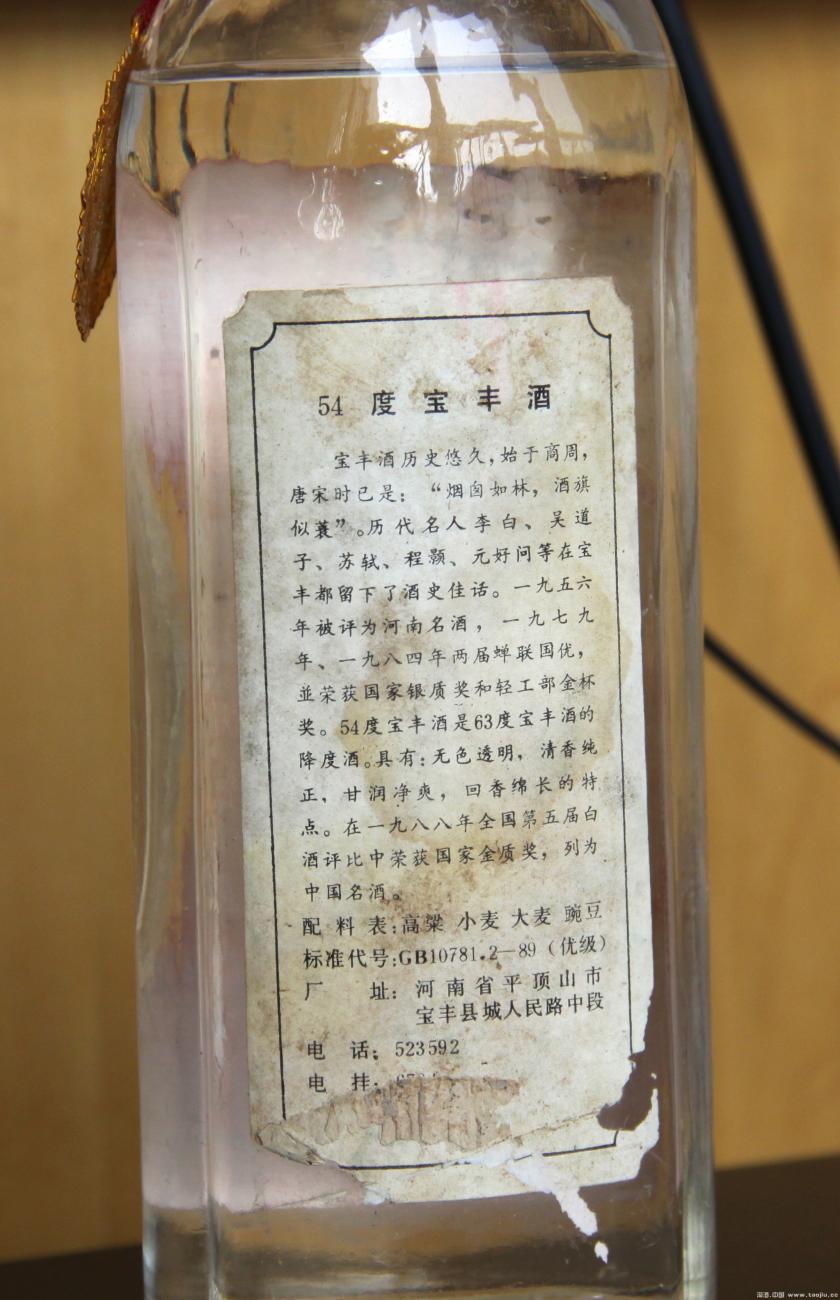 54 度宝丰酒
宝丰酒历史悠久,始于商周,
唐宋时已是:“烟囱如林,酒旗
似蓑”。历代名人李白、吴道
子、苏轼、程颢、元好问等在宝
丰都留下了酒史佳话。一九五六
年被评为河南名酒,一九七九
年、一九八四年两届蝉联国优,
並荣获国家银质奖和轻工部金杯
奖。54度宝丰酒是63度宝丰酒的
降度酒。具有:无色透明,清香纯
正,甘润净爽,回香绵长的特
点。在一九八八年全国第五届白
酒评比中荣获国家金质奖,列为
中国名酒。
配料表:高粱 小麦 大麦 豌豆
标准代号:GB10781.2—89(优级)
厂 址:河南省平顶山市
宝丰县城人民路中段
电 话:523592
电 挂:
淘酒.中国 www.taojiu.cn